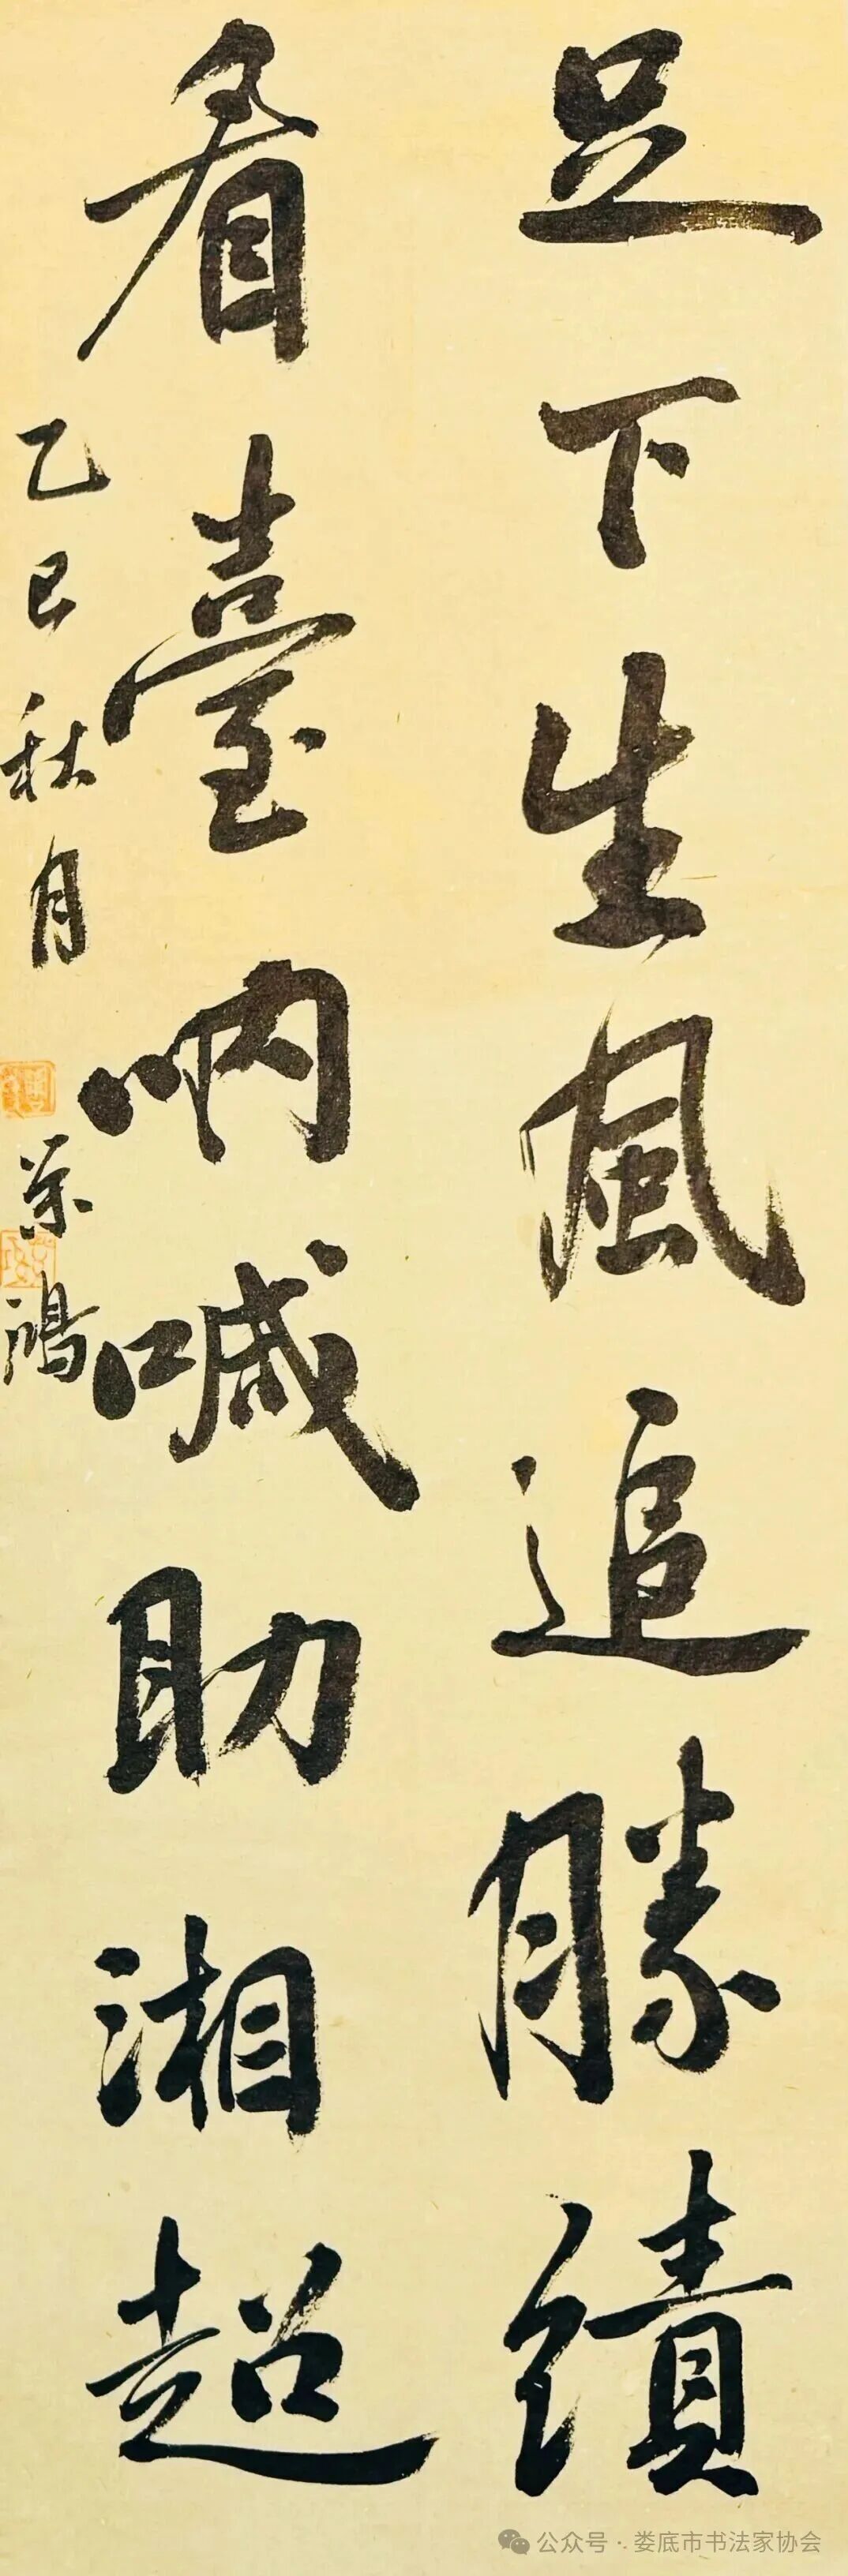 足下生風追勝績
看臺呐喊助湘超
乙巳秋月
景鴻
公众号·娄底市书法家协会